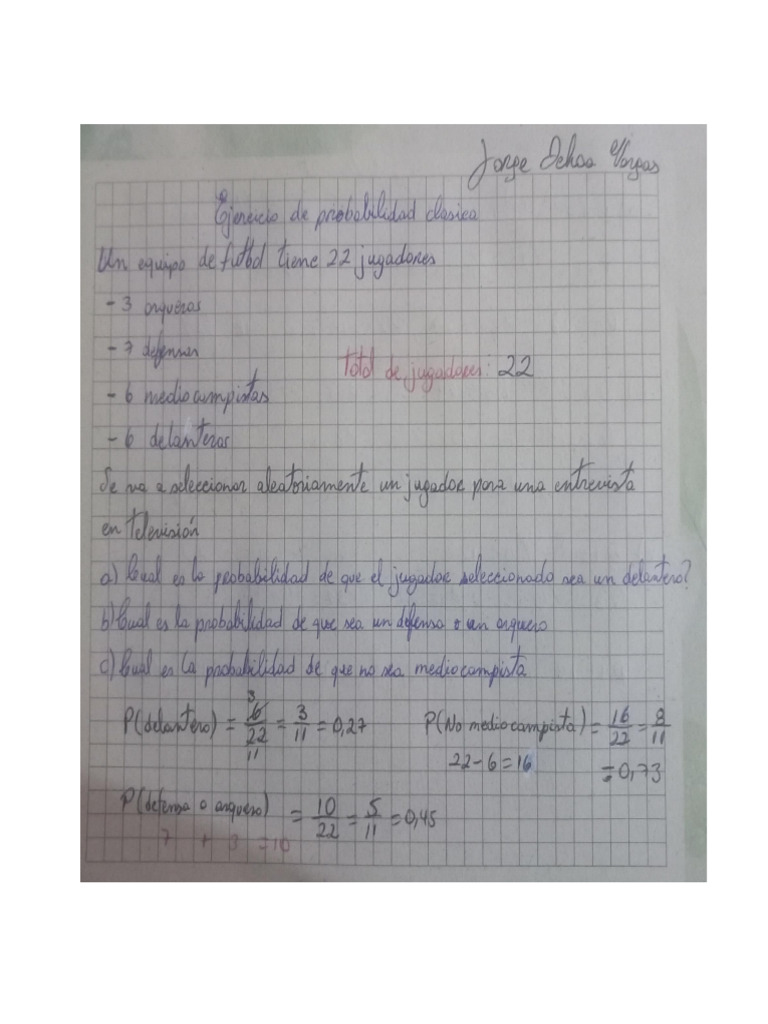 Jorge Ochoa Vargas
Ejercicio de probabilidad clasica
Un equipo de futbol tiene 22 jugadores
- 3 arqueros
- 7 defensas
Total de jugadores: 22
- 6 mediocampistas
- 6 delanteros
Se va a seleccionar aleatoriamente un jugador para una entrevista
en televisión
a) Cual es la probabilidad de que el jugador seleccionado sea un delantero?
b) Cual es la probabilidad de que sea un defensa o un arquero
c) Cual es la probabilidad de que no sea mediocampista
P(delantero) = 6/22 = 3/11 = 0,27
3
11
P(No mediocampista) = 16/22 = 8/11
22-6=16 = 0,73
P(defensa o arquero) = 10/22 = 5/11 = 0,45
7 + 3 = 10